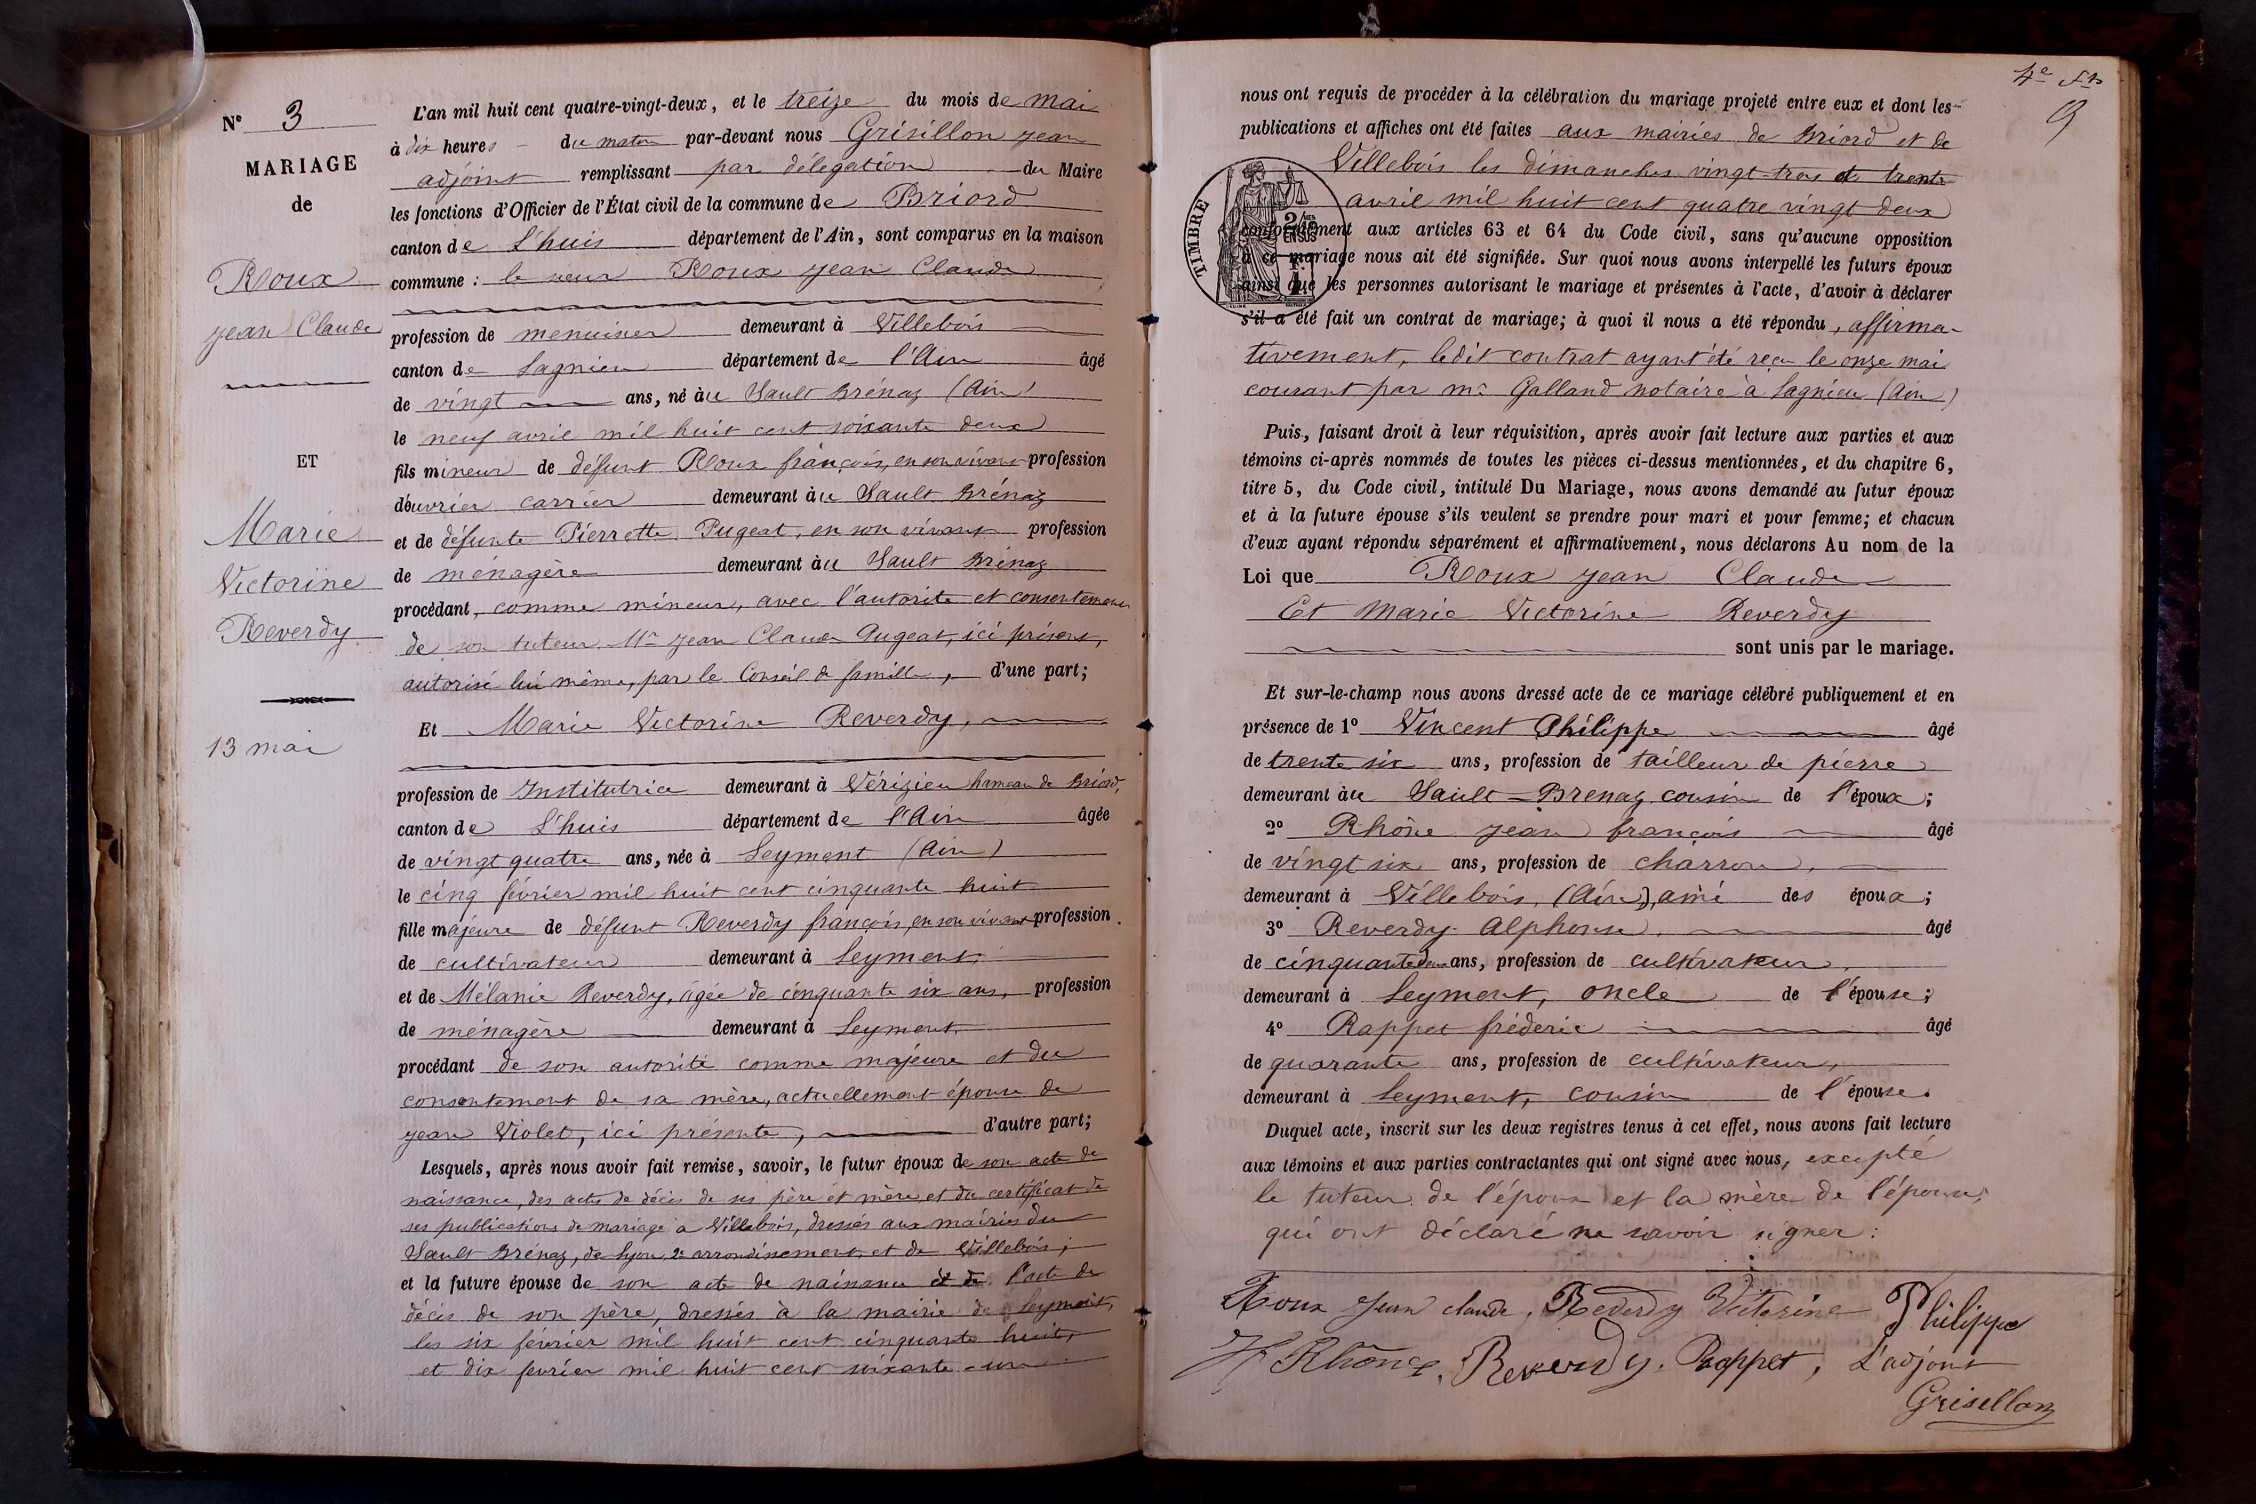 N° 3
MARIAGE
de
Roux
Jean Claude
ET
Marie
Victorine
Reverdy
13 mai
L'an mil huit cent quatre-vingt-deux, et le treize du mois de mai
à dix heures du matin par-devant nous Grisillon Jean
adjoint remplissant par délégation du Maire
les fonctions d'Officier de l'État civil de la commune de Briord
canton de L'huis département de l'Ain, sont comparus en la maison
commune : le sieur Roux Jean Claude
profession de menuisier demeurant à Villebois
canton de Lagnieu département de l'Ain âgé
de vingt ans, né au Sault Brénaz (Ain)
le neuf avril mil huit cent soixante deux
fils mineur de défunt Roux françois, en son vivant profession
d'ouvrier carrier demeurant au Sault Brénaz
et de défunte Pierrette Pugeat, en son vivant profession
de ménagère demeurant au Sault Brénaz
procédant, comme mineur, avec l'autorité et consentement
de son tuteur Mr Jean Claude Pugeat, ici présent,
autorisé lui même, par le Conseil de famille, d'une part;
Et Marie Victorine Reverdy,
profession de Institutrice demeurant à Vérizieu hameau de Briord,
canton de L'huis département de l'Ain âgée
de vingt quatre ans, née à Leyment (Ain)
le cinq février mil huit cent cinquante huit
fille majeure de défunt Reverdy françois, en son vivant profession
de cultivateur demeurant à Leyment
et de Mélanie Reverdy, âgée de cinquante six ans, profession
de ménagère demeurant à Leyment
procédant de son autorité comme majeure et du
consentement de sa mère, actuellement épouse de
Jean Violet, ici présente, d'autre part;
Lesquels, après nous avoir fait remise, savoir, le futur époux de son acte de
naissance, des actes de décès de ses père et mère, et du certificat de
ses publications de mariage à Villebois, dressés aux mairies du
Sault Brénaz, de Lyon 2e arrondissement et de Villebois;
et la future épouse de son acte de naissance et de l'acte de
décès de son père, dressés à la mairie de Leyment,
les six février mil huit cent cinquante huit,
et dix février mil huit cent soixante-un
4e
9
nous ont requis de procéder à la célébration du mariage projeté entre eux et dont les
publications et affiches ont été faites aux mairies de Briord et de
Villebois les dimanches vingt-trois et trente
avril mil huit cent quatre vingt deux
TIMBRE
conformément aux articles 63 et 64 du Code civil, sans qu'aucune opposition
à ce mariage nous ait été signifiée. Sur quoi nous avons interpellé les futurs époux
ainsi que les personnes autorisant le mariage et présentes à l'acte, d'avoir à déclarer
s'il a été fait un contrat de mariage; à quoi il nous a été répondu, affirma-
tivement, ledit contrat ayant été reçu le onze mai
courant par me Galland notaire à Lagnieu (Ain)
Puis, faisant droit à leur réquisition, après avoir fait lecture aux parties et aux
témoins ci-après nommés de toutes les pièces ci-dessus mentionnées, et du chapitre 6,
titre 5, du Code civil, intitulé Du Mariage, nous avons demandé au futur époux
et à la future épouse s'ils veulent se prendre pour mari et pour femme; et chacun
d'eux ayant répondu séparément et affirmativement, nous déclarons Au nom de la
Loi que Roux Jean Claude
Et Marie Victorine Reverdy
sont unis par le mariage.
Et sur-le-champ nous avons dressé acte de ce mariage célébré publiquement et en
présence de 1° Vincent Philippe âgé
de trente six ans, profession de tailleur de pierre
demeurant au Sault-Brenaz cousin de l'époux;
2° Rhône Jean françois âgé
de vingt six ans, profession de charron,
demeurant à Villebois, (Ain), ami des époux;
3° Reverdy Alphonse, âgé
de cinquante deux ans, profession de cultivateur,
demeurant à Leyment, oncle de l'épouse;
4° Rappet fréderic âgé
de quarante ans, profession de cultivateur,
demeurant à Leyment, cousin de l'épouse.
Duquel acte, inscrit sur les deux registres tenus à cet effet, nous avons fait lecture
aux témoins et aux parties contractantes qui ont signé avec nous, excepté
le tuteur de l'époux et la mère de l'épouse,
qui ont déclaré ne savoir signer :
Roux Jean claude, Reverdy Victorine Philippe
Rhône, Reverdy. Rappet, L'adjoint
Grisillon